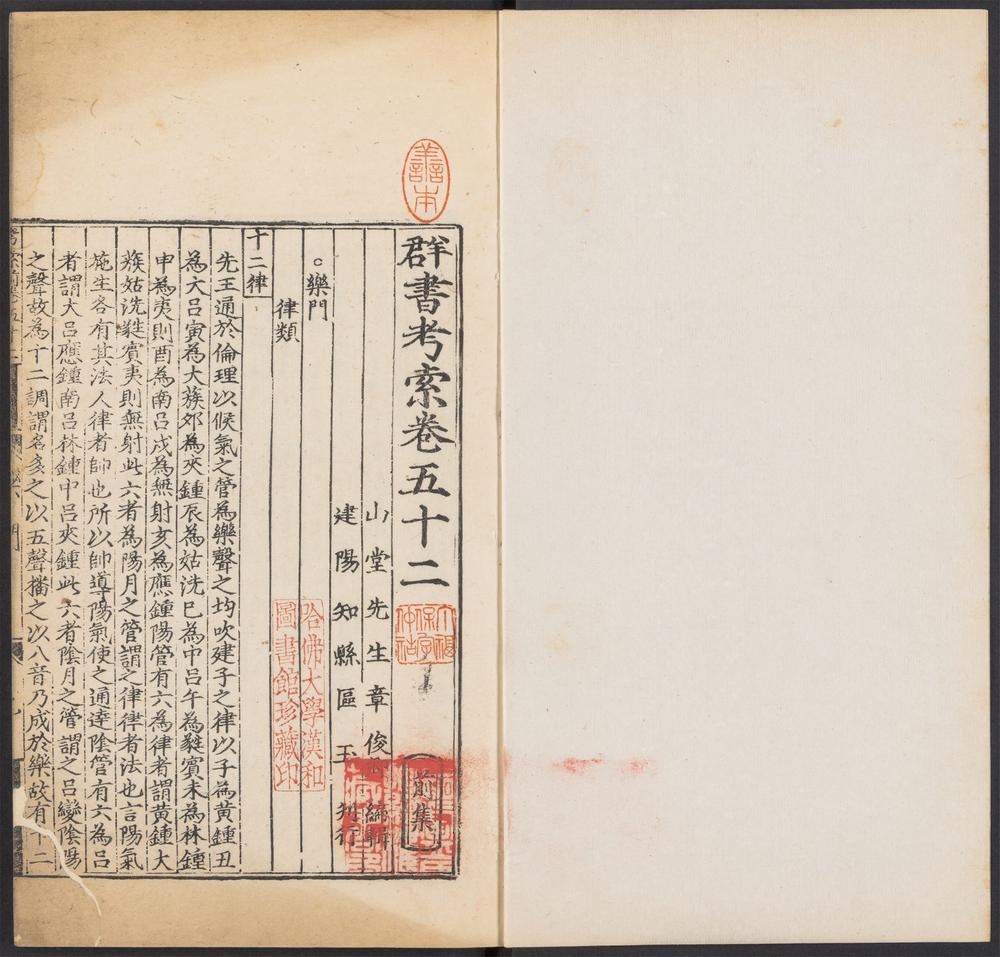 善本
群書考索卷五十二
前集
山堂先生章俊卿編輯
建陽知縣區玉刋行
哈佛大學漢和
圖書館珍藏印
○樂門
律類
十二律
先王通於倫理以候氣之管為樂聲之均吹建子之律以子為黃鍾丑
為大吕寅為大蔟夘為夾鍾辰為姑洗巳為中吕午為蕤賓未為林鍾
申為夷則酉為南吕戍為無射亥為應鍾陽管有六為律者謂黃鍾大
蔟姑洗蕤賓夷則無射此六者為陽月之管謂之律律者法也言陽氣
施生各有其法人律者帥也所以帥導陽氣使之通達陰管有六為吕
者謂大吕應鍾南吕林鍾中吕夾鍾此六者陰月之管謂之吕變陰陽
之聲故為十二調調各文之以五聲播之以八音乃成於樂故有十二